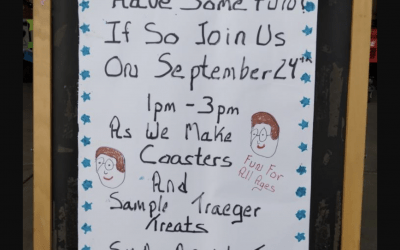 Have Some Fun!
If So Join Us
On September 24th
1pm - 3pm
As We Make
Coasters
Fun For
All Ages
And
Sample Traeger
Treats